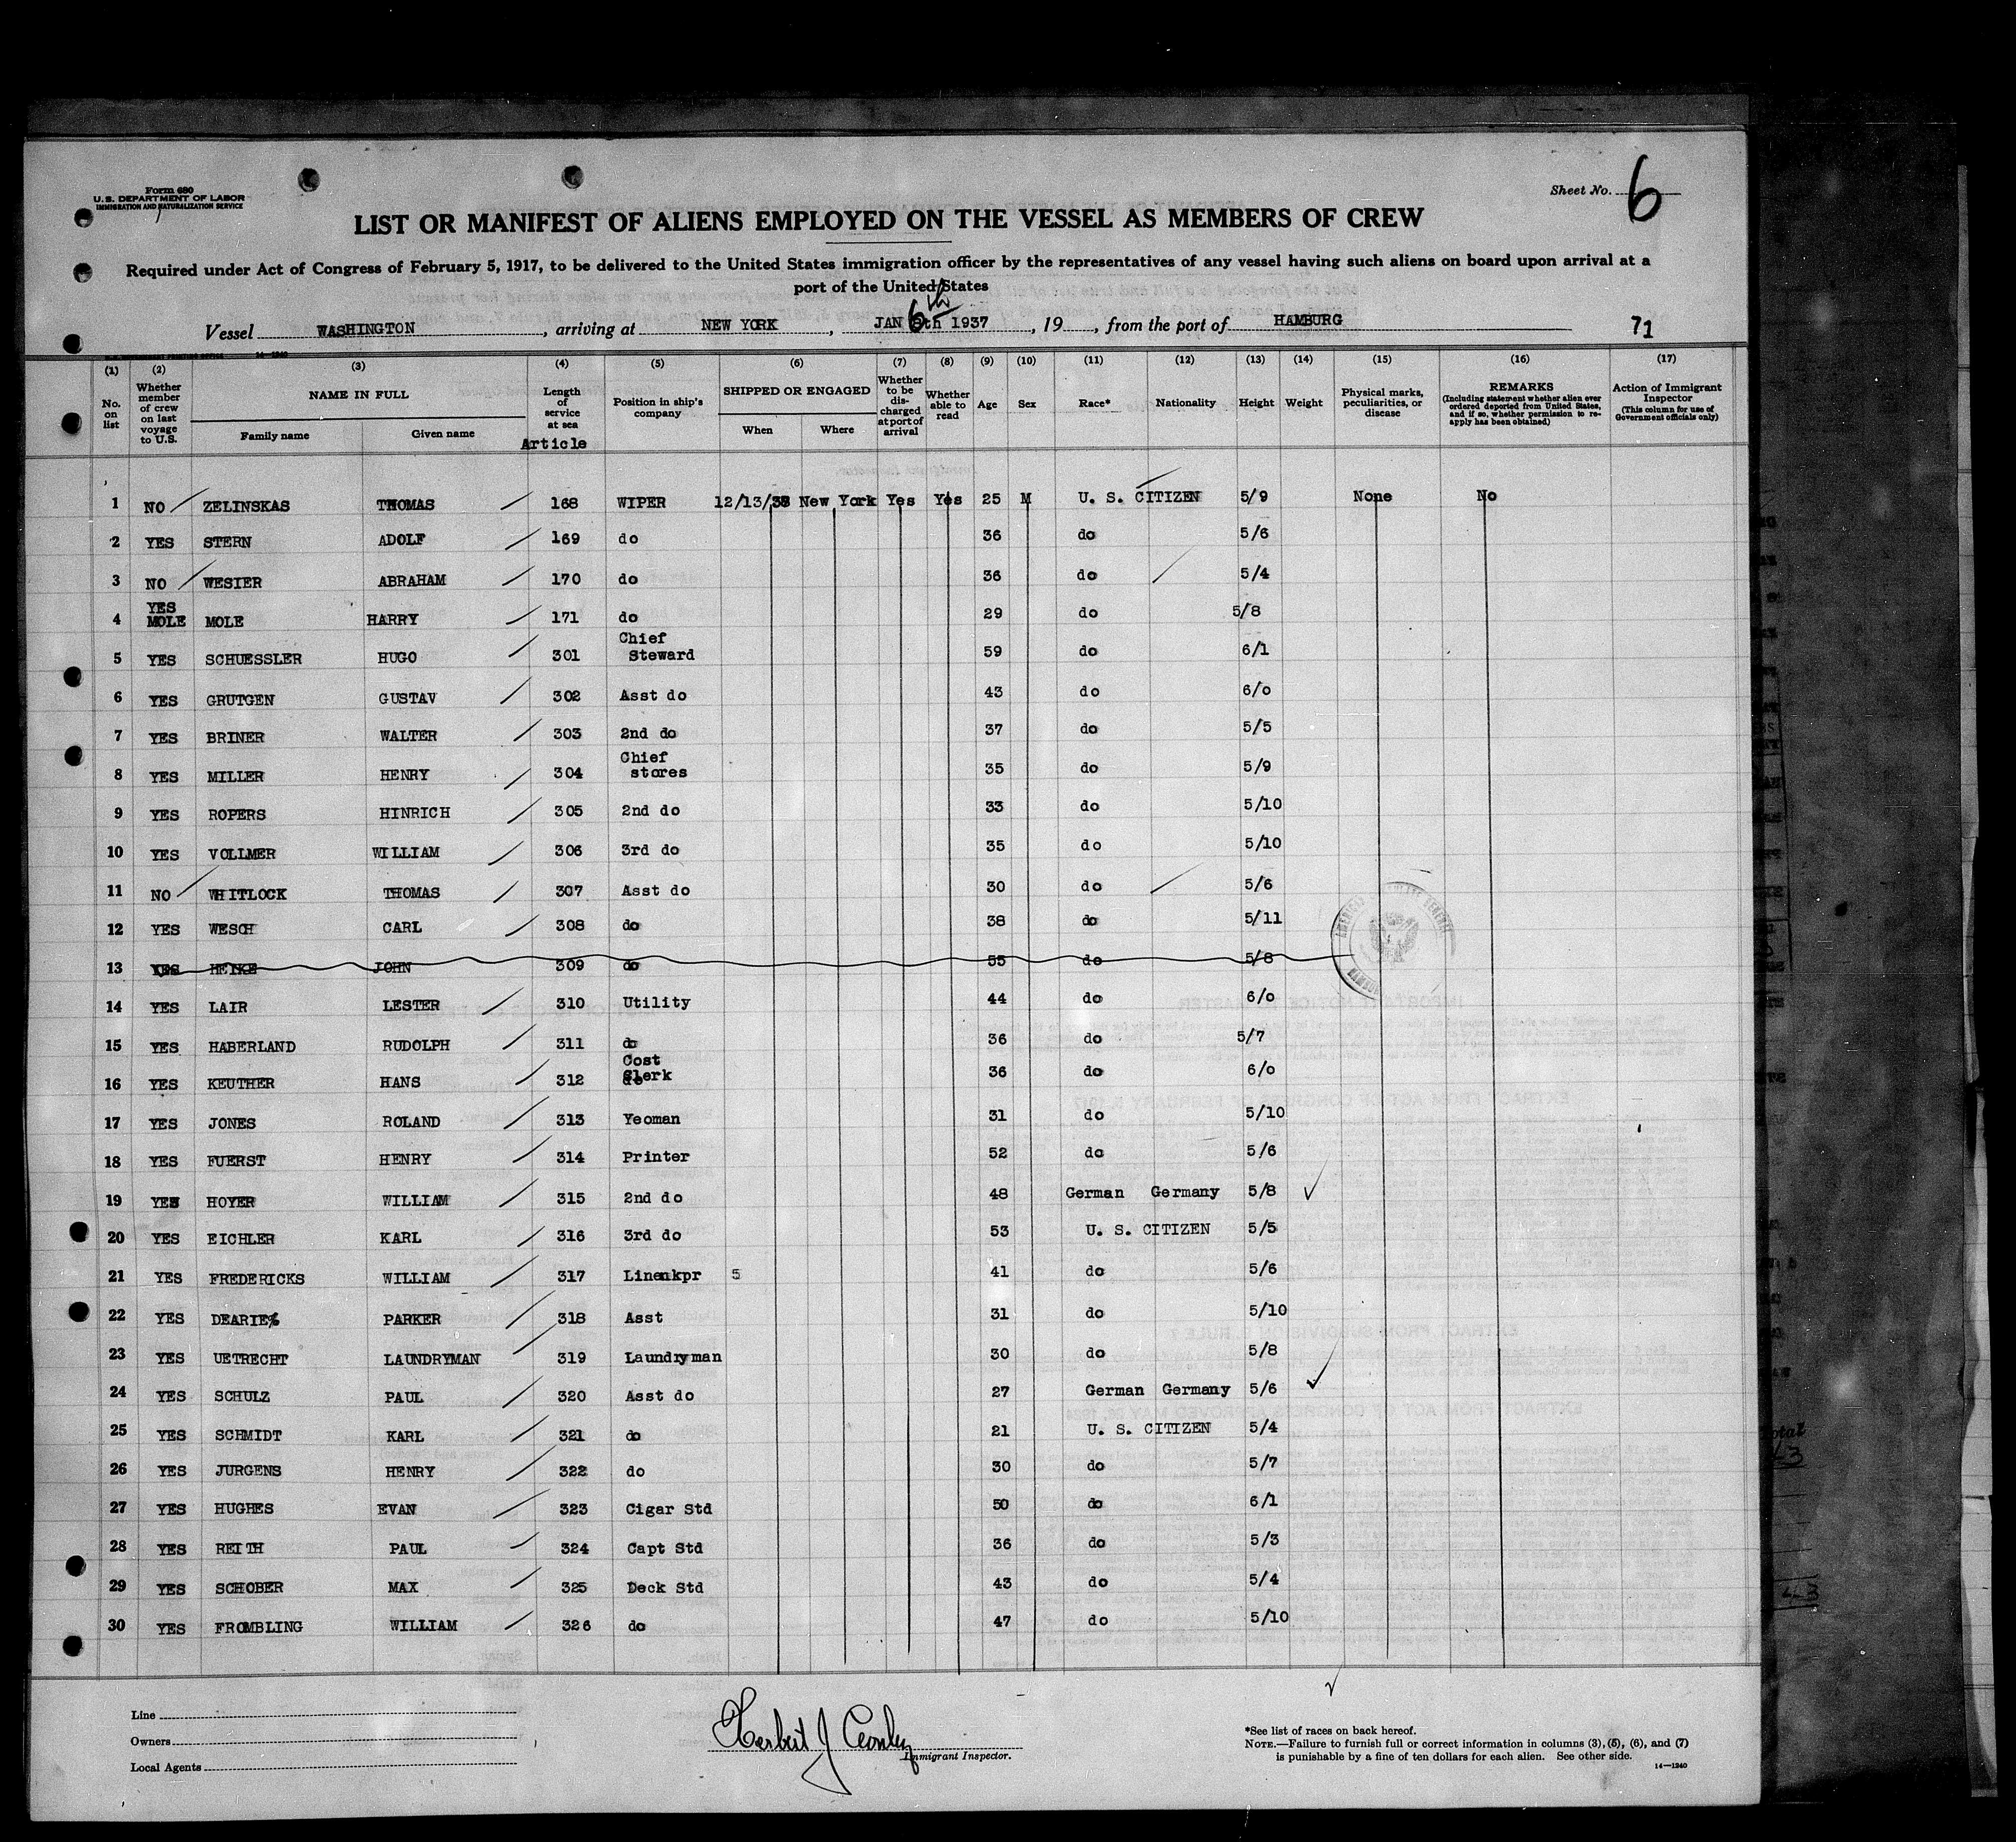 Form 680
U. S. DEPARTMENT OF LABOR
IMMIGRATION AND NATURALIZATION SERVICE
Sheet No. 6
LIST OR MANIFEST OF ALIENS EMPLOYED ON THE VESSEL AS MEMBERS OF CREW
Required under Act of Congress of February 5, 1917, to be delivered to the United States immigration officer by the representatives of any vessel having such aliens on board upon arrival at a
port of the United States
Vessel WASHINGTON, arriving at NEW YORK, JAN 6th 1937, 19, from the port of HAMBURG
71
14-1240
(1) (2) (3) (4) (5) (6) (7) (8) (9) (10) (11) (12) (13) (14) (15) (16) (17)
No. on list
Whether member of crew on last voyage to U.S.
NAME IN FULL
Family name Given name
Length of service at sea
Article
Position in ship's company
SHIPPED OR ENGAGED
When Where
Whether to be discharged at port of arrival
Whether able to read
Age Sex Race* Nationality Height Weight
Physical marks, peculiarities, or disease
REMARKS
(Including statement whether alien ever ordered deported from United States, and if so, whether permission to re-apply has been obtained)
Action of Immigrant Inspector
(This column for use of Government officials only)
1 NO ZELINSKAS THOMAS 168 WIPER 12/13/38 New York Yes Yes 25 M U. S. CITIZEN 5/9 None No
2 YES STERN ADOLF 169 do 36 do 5/6
3 NO WESIER ABRAHAM 170 do 36 do 5/4
4 YES MOLE MOLE HARRY 171 do 29 do 5/8
5 YES SCHUESSLER HUGO 301 Chief Steward 59 do 6/1
6 YES GRUTGEN GUSTAV 302 Asst do 43 do 6/0
7 YES BRINER WALTER 303 2nd do 37 do 5/5
8 YES MILLER HENRY 304 Chief stores 35 do 5/9
9 YES ROPERS HINRICH 305 2nd do 33 do 5/10
10 YES VOLLMER WILLIAM 306 3rd do 35 do 5/10
11 NO WHITLOCK THOMAS 307 Asst do 30 do 5/6
12 YES WESCH CARL 308 do 38 do 5/11
13 YES HEIKE JOHN 309 do 55 do 5/8
14 YES LAIR LESTER 310 Utility 44 do 6/0
15 YES HABERLAND RUDOLPH 311 do 36 do 5/7
16 YES KEUTHER HANS 312 Cost Clerk 36 do 6/0
17 YES JONES ROLAND 313 Yeoman 31 do 5/10
18 YES FUERST HENRY 314 Printer 52 do 5/6
19 YES HOYER WILLIAM 315 2nd do 48 German Germany 5/8
20 YES EICHLER KARL 316 3rd do 53 U. S. CITIZEN 5/5
21 YES FREDERICKS WILLIAM 317 Linenkpr 5 41 do 5/6
22 YES DEARIE% PARKER 318 Asst 31 do 5/10
23 YES UETRECHT LAUNDRYMAN 319 Laundryman 30 do 5/8
24 YES SCHULZ PAUL 320 Asst do 27 German Germany 5/6
25 YES SCHMIDT KARL 321 do 21 U. S. CITIZEN 5/4
26 YES JURGENS HENRY 322 do 30 do 5/7
27 YES HUGHES EVAN 323 Cigar Std 50 do 6/1
28 YES REITH PAUL 324 Capt Std 36 do 5/3
29 YES SCHOBER MAX 325 Deck Std 43 do 5/4
30 YES FROMBLING WILLIAM 326 do 47 do 5/10
Line
Owners
Local Agents
Herbert J
Immigrant Inspector.
*See list of races on back hereof.
NOTE.—Failure to furnish full or correct information in columns (3), (5), (6), and (7)
is punishable by a fine of ten dollars for each alien. See other side.
14—1240